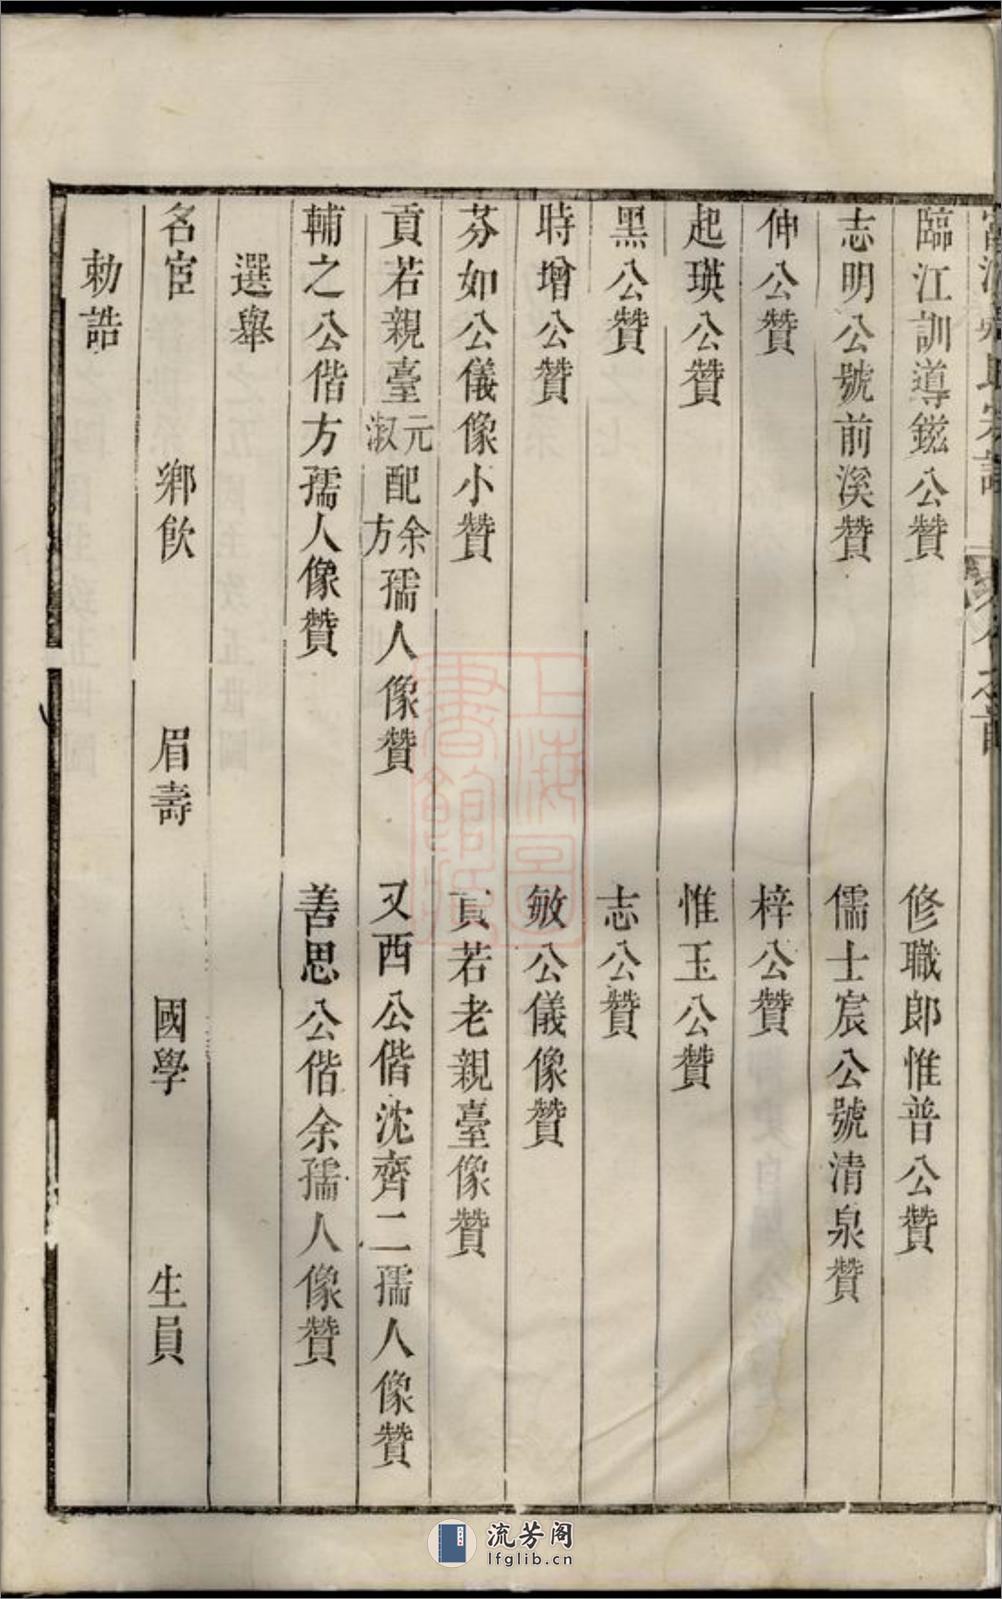 臨江訓導鎡公贊　修職郎惟普公贊
志明公號前溪贊　儒士宸公號清泉贊
伸公贊　梓公贊
起瑛公贊　惟玉公贊
黑公贊　志公贊
時增公贊　敏公儀像贊
芬如公儀像小贊　貢若老親臺像贊
貢若親臺元淑配余方孺人像贊　又西公偕沈齊二孺人像贊
輔之公偕方孺人像贊　善思公偕余孺人像贊
選舉
名宦　鄉飲　眉壽　國學　生員
勅誥
上海圖書館藏
流芳阁
lfglib.cn